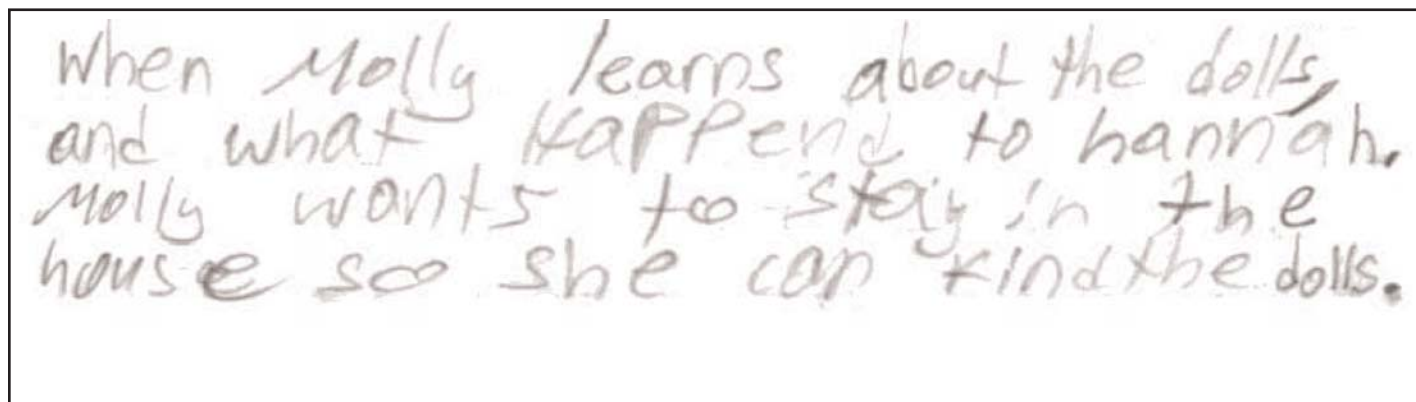 When Molly learns about the dolls,
and what Happend to hannah.
Molly wants to stay in the
house so she can find the dolls.